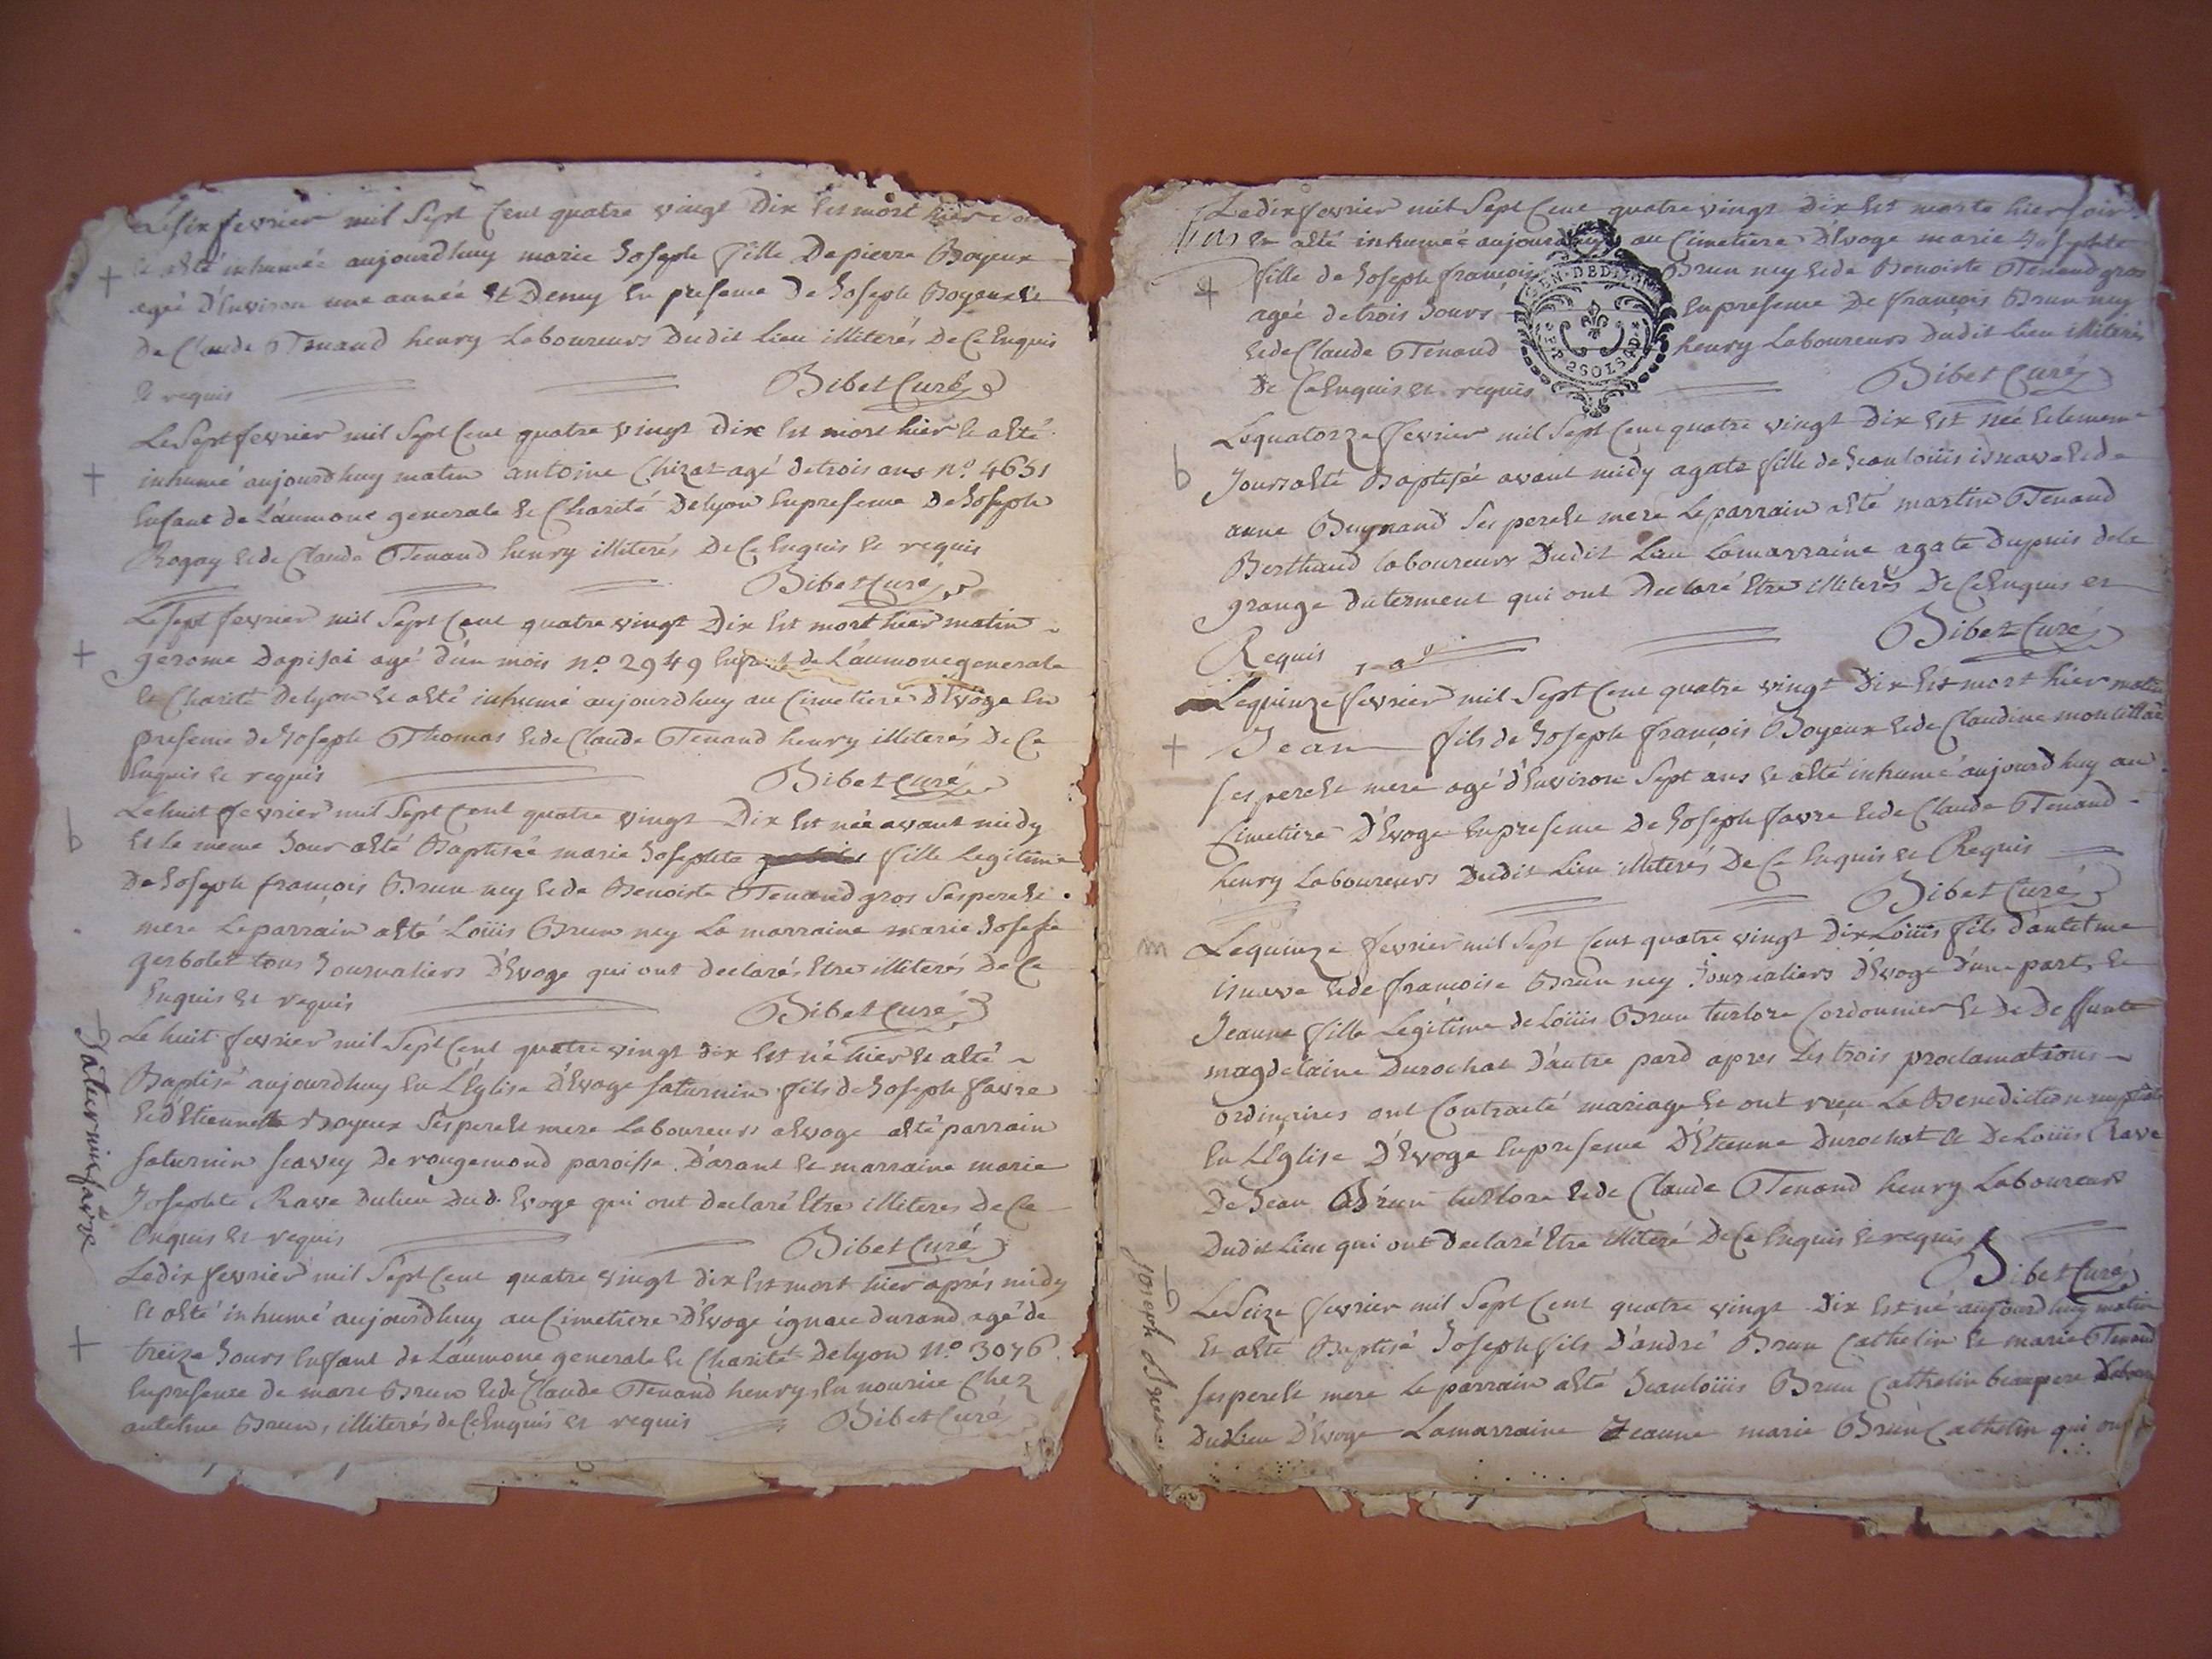 Le six fevrier mil Sept Cent quatre vingt Dix Est mort hier
Et aEté inhumée aujourdhuy marie Joseph fille De pierre Boyeux
agée D'Environ une année Et Demy En presence De Joseph Boyeux Et
De Claude Tenand henry Laboureurs Dudit Lieu illiterés De Ce Enquis
Et requis Bibet Curé
Le Sept fevrier mil Sept Cent quatre vingt Dix Est mort hier Et aEté
inhumé aujourdhuy matin antoine Chizat agé de trois ans n.º 4651
Enfant de L'aumone generale Et Charité De Lyon En presence De Joseph
Rogay Et de Claude Tenand henry illiterés De Ce Enquis Et requis
Bibet Curé
Le Sept fevrier mil Sept Cent quatre vingt Dix Est mort hier matin
gerome Dapisai agé d'un mois n.º 2949 Enfant de L'aumone generale
Et Charité De Lyon Et aEté inhumé aujourdhuy au Cimetiere d'Evoge En
presence de Joseph Thomas Et de Claude Tenand henry illiterés De Ce
Enquis Et requis Bibet Curé
b
Le huit fevrier mil Sept Cent quatre vingt Dix Est née avant midy
Et le meme Jour aEté Baptisée marie Josephte fille Legitime
De Joseph françois Brun ney Et de Benoiste Tenand gros Ses pere Et
mere Le parrain aEté Loüis Brun ney La marraine marie Josephe
gerbolet tous Journaliers D'Evoge qui ont declarés Etre illiterés De Ce
Enquis Et requis Bibet Curé
b Saturnin favre
Le huit fevrier mil Sept Cent quatre vingt Dix Est né hier Et aEté
Baptisé aujourdhuy En L'Eglise D'Evoge Saturnin fils de Joseph favre
Et d'Etiennette Boyeux Ses pere Et mere Laboureurs a Evoge aEté parrain
Saturnin Savey De rougemond paroisse D'arant Et marraine marie
Josephte Rave Du lieu Du d. Evoge qui ont declaré Etre illiteres De Ce
Enquis Et requis Bibet Curé
Le dix fevrier mil Sept Cent quatre vingt dix Est mort hier aprés midy
Et aEté inhumé aujourdhuy au Cimetiere D'Evoge ignace durand agé de
treize Jours Enffant de L'aumone generale Et Charité De Lyon N.º 3076
En presence de marc Brun Et de Claude Tenand henry, En nourice Chez
antelme Brun, illiterés de Ce Enquis Et requis Bibet Curé
Le dix fevrier mil Sept Cent quatre vingt Dix Est morte hier Soir
Et aEté inhumée aujourdhuy au Cimetiere D'Evoge marie Josephte
fille de Joseph françois Brun ney Et de Benoiste Tenand gros
ageé de trois Jours En presence De françois Brun ney
Et de Claude Tenand henry Laboureurs Dudit Lieu illiterés
De Ce Enquis Et requis Bibet Curé
GEN. DEDI
DEUX SOLS
b
Le quatorze fevrier mil Sept Cent quatre vingt Dix Est née Et le meme
Jour aEté Baptisée avant midy agate fille de Jean loüis isnave Et de
anne Guynand Ses pere Et mere Le parrain aEté martin Tenand
Berthaud laboureurs Dudit Lieu La marraine agate Dupuis de la
grange du terment qui ont Declaré Etre illiterés De Ce Enquis Et
Requis Bibet Curé
Le quinze fevrier mil Sept Cent quatre vingt Dix Est mort hier matin
Jean fils de Joseph françois Boyeux Et de Claudine montillad
Ses pere Et mere agé d'Environ Sept ans Et aEté inhumé aujourdhuy au
Cimetiere D'Evoge En presence De Joseph favre Et de Claude Tenand
henry Laboureurs Dudit Lieu illiterés De Ce Enquis Et Requis
Bibet Curé
m
Le quinze fevrier mil Sept Cent quatre vingt Dix Loüis fils d'antelme
isnave Et de françoise Brun ney Journaliers D'Evoge D'une part, Et
Jeanne fille Legitime de Loüis Brun turlore Cordonnier Et De Deffunte
magdelaine Durochat D'autre pard apres Les trois proclamations
ordinaires ont Contracté mariage Et ont reçu La Benediction nuptiale
En L'Eglise D'Evoge En presence D'Etienne Durochat Et De Loüis Rave
De Jean Brun turlore Et de Claude Tenand henry Laboureurs
Dudit Lieu qui ont Declaré Etre illiteré De Ce Enquis Et requis
Bibet Curé
b Joseph Brun
Le Seize fevrier mil Sept Cent quatre vingt Dix Est né aujourdhuy matin
Et aEté Baptisé Joseph fils D'andré Brun Cathelin Et marie Tenand
Ses pere Et mere Le parrain aEté Jean loüis Brun Cathelin beaupere
Du Lieu D'Evoge La marraine Jeanne marie Brun Cathelin qui ont